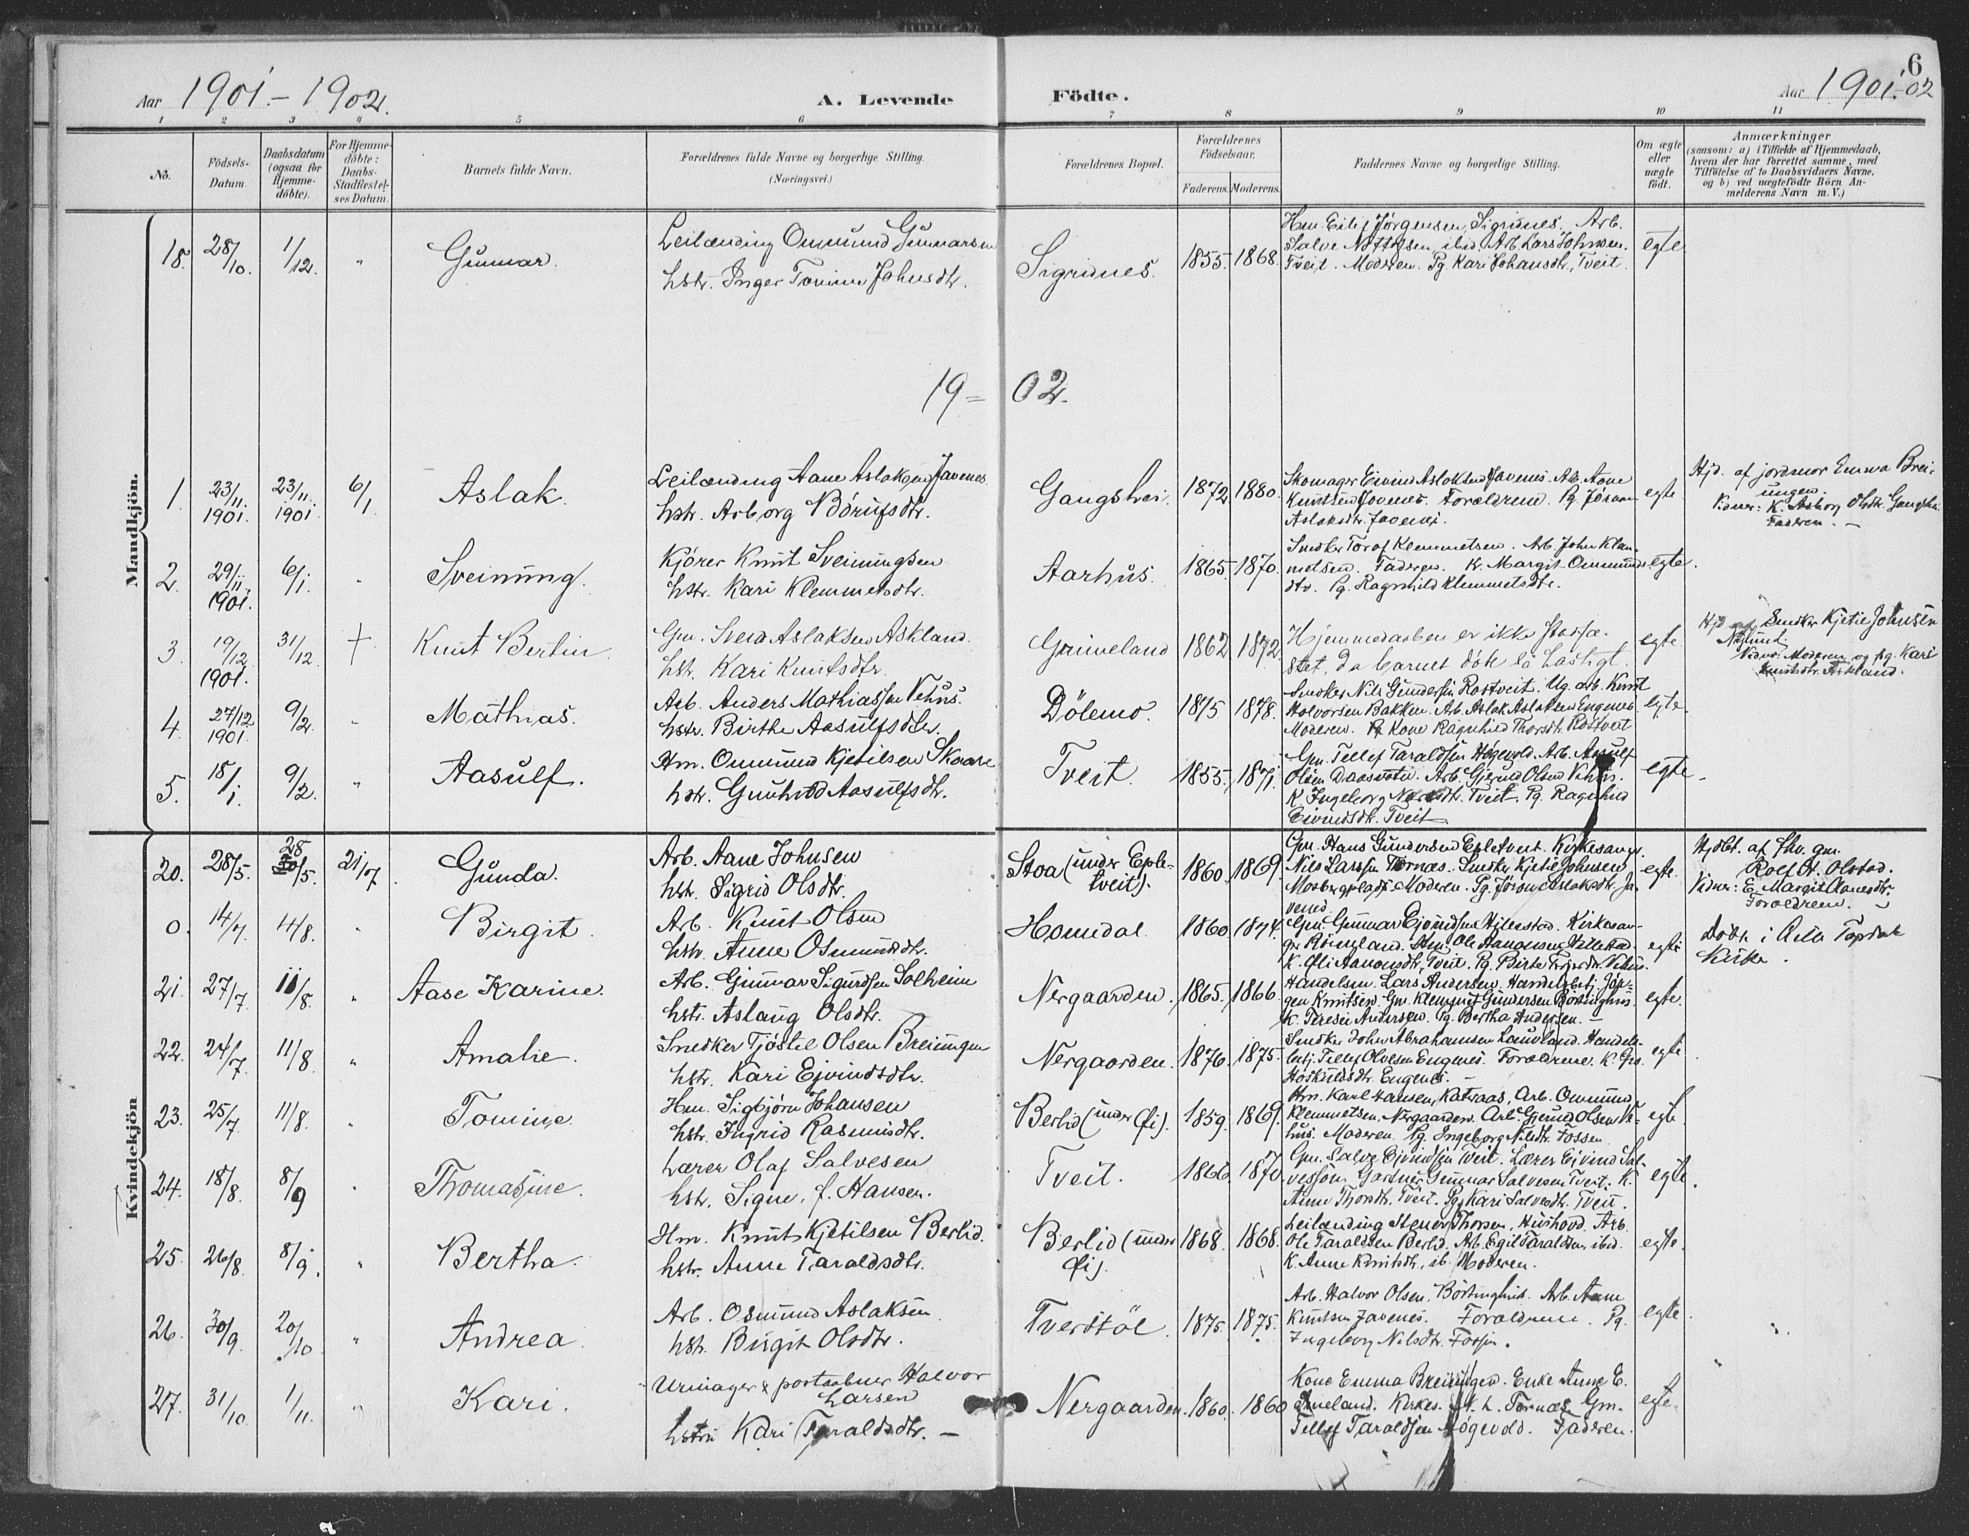 Aar 1901.-1902.
A. Levende Födte.
Aar 1901.-02
6
1 2 3 4 5 6 7 8 9 10 11
No.
Födsels-Datum.
Daabsdatum (ogsaa for Hjemme-döbte).
For Hjemme-döbte: Daabs-Stadfæstel-ses Datum.
Barnets fulde Navn.
Forældrenes fulde Navne og borgerlige Stilling.
(Næringsvei.)
Forældrenes Bopæl.
Forældrenes Födselsaar.
Faderens. Moderens.
Faddernes Navne og borgerlige Stilling.
Om ægte eller uægte födt.
Anmærkninger
(saasom: a) i Tilfælde af Hjemmedaab,
hvem der har forrettet samme, med
Tilföielse af to Daabsvidners Navne,
og b) ved uægtefödte Börn An-
melderens Navn m. V.)
Mandkjön.
18. 28/10. 1/12. " Gunnar. Leilænding Ommund Gunnarsen
hstr. Inger Tomine Johnsdtr. Sigridnes. 1855. 1868. egte
Hm. Eilef Jørgensen, Sigridnes, Arb.
Salve ibid. Arb. Lars Johnsen,
Tveit. Moderen. Pg. Kari Johansdtr, Tveit.
19=02.
1. 23/11. 1901. 23/11. 1901. 6/1 Aslak. Leilænding Aane Aslaksen Javenes
hstr. Asborg 1872 1880. egte
Skomager Eivind Aslaksen Javenes. Arb. Aane
Knutsen Javenes. Forældrene. Pg. Jøraan
Aslaksdtr. Javenes.
Hjd. af jordmor Emma Brei-
ungen.
Vidner: K. Asborg Olsdtr.
Faderen. —
2. 29/11. 1901. 6/1. " Sveinung. Kjører Knut Sveinungsen
hstr. Kari Klemmetsdtr. Aarhus. 1865. 1870. egte.
Snedker Torof Klemmetsen. Arb. John Klem-
metsen. Faderen. K. Margit Ommunds-
dtr. Pg. Ragnhild Klemmetsdtr.
3. 19/12. 1901. 31/12. + Knut Bertin Gm. Svend Aslaksen Askland.
hstr. Kari Knutsdtr. Grimeland 1862 1872. egte
Hjemmedaaben er ikke stadfæ-
stet, da barnet døde så hastigt.
Hjd. af Snedker Kjetil Johnsen
Vidner: Moderen og pg. Kari
Knutsdtr. Askland.
4. 27/12 1901. 9/2. " Mathias. Arb. Anders Mathiassen Vehus.
hstr. Birthe Aasulfsdtr. Dölemo. 1875 1878. egte.
Snedker Nils Gundersen Rostveit. Ug. arb. Knut
Halvorsen Bakken. Arb. Aslak Aslaksen Engenes
Moderen. Kone Ragnhild Thorsdtr. Rostveit
5. 18/1. 9/2. " Aasulf. Hm. Ommund Kjetilsen Skaare
hstr. Gunhild Aasulfsdtr. Tveit. 1855. 1871. egte.
Gm. Tellef Taraldsen Høgevold. Arb. Aasulf
Olsen Arb. Gjerulf Olsen Vehus.
K. Ingeborg Tveit. Pg. Ragnhild
Eivindsdtr. Tveit.
Kvindekjön
20. 28/5. 28/5. 21/07. Gunda. Arb. Aane Johnsen
hstr. Sigrid Olsdtr. Stoa (under Eple-
tveit). 1860. 1869. egte.
Gm. Hans Gundersen Epletveit. Kirkesanger
Nils Larssen Tornæs. Snedker Kjetil Johnsen
Moderen. Pg. Jøraan Aslaksdtr. Ja-
venes.
Hjdbt. af Stv. gm.
Rolf H. Olstad.
Vidner: E. Margit Aanesdtr.
Forældrene.
0. 14/7. 4/8. " Birgit. Arb. Knut Olsen
hstr. Anne Osmundsdtr. Homdal. 1860. 1874. egte
Gm. Gunnar Eivindsen Hillestad. Kirkesan-
ger Røineland. Hm. Ole Aanonsen Hillestad.
K. Tveit. Pg. Birte Vehus.
Döbt i Aals Topdal
Kirke.
21. 27/7. 11/8. " Aase Karine. Arb. Gunnar Sigurdsen Solheim
hstr. Aslaug Olsdtr. Nergaarden. 1865. 1866. egte.
Handelsm. Lars Andersen. Handelsbetj. Jør-
gen Knutsen. Gm. Klemmet Gundersen Börtinghus.
K. Terese Andersen. Pg. Bertha Andersen. —
22. 24/7. 11/8 " Amalie. Snedker Tjöstel Olsen Breiungen
hstr. Kari Ejvindsdtr. Nergaarden. 1876. 1875. egte
Snedker John Abrahamsen Lauvland. Handels-
betj. Tellef Olsen Engenes. Forældrene. K. Gro
Høskuldsdtr. Engenes. —
23. 25/7 11/8. " Tomine. Hm. Sigbjørn Johansen
hstr. Ingrid Rasmusdtr. Berlid (under Øi). 1859. 1869. egte
Hm. Karl Hansen, Katraas, Arb. Ommund
Klemmetsen, Nergaarden. Arb. Gjerulf Olsen Ve-
hus. Moderen. Pg. Ingeborg Nilsdtr. Fossen.
24. 18/8. 8/9 " Thomasine. Lærer Olaf Salvesen
hstr. Signe, f. Hansen. Tveit. 1866. 1870. egte.
Gm. Salve Ejvindsen Tveit. Lærer Ejvind Sal-
vesson. Gartner Gunnar Salvesen Tveit. K.
Anne Thorsdtr. Tveit. Pg. Kari Salvesdtr. Tveit.
25. 26/8. 8/9. " Bertha. Hm. Knut Kjetilsen Berlid.
hstr. Anne Taraldsdtr. Berlid (under
Øi). 1868. 1868. egte.
Leilænding Stener Thorsen, Hushovd. Arb.
Ole Taraldsen Berlid. Arb. Egil Taraldsen ibid.
K. Anne Knutsdtr, ib. Moderen.
26. 30/9. 20/10. " Andrea. Arb. Osmund Aslaksen
hstr. Birgit Olsdtr. Tverstöl. 1875. 1875. egte.
Arb. Halvor Olsen, Börtinghus. Arb. Aane
Knutsen Javenes. Forældrene. Pg.
Ingeborg Nilsdtr. Fossen.
27. 31/10. 1/11. " Kari. Urmager & postaabner Halvor
Larsen
hstr. Kari Taraldsdtr. — Nergaarden. 1860. 1860 egte
Kone Emma Breiungen. Enke Anne E.
Kirkes. N. L. Tornæs. Gm.
Tellef Taraldsen Høgevold. Faderen.